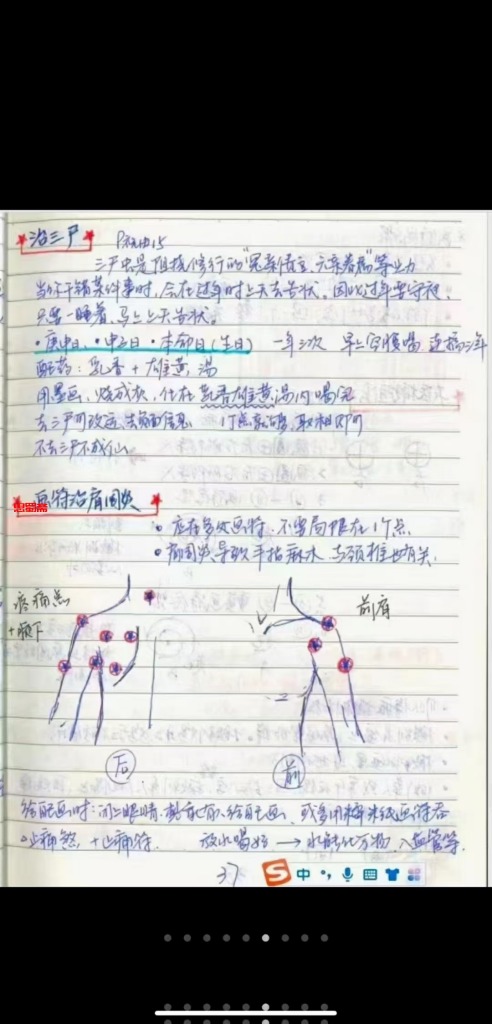 治三尸
三尸虫是阻拦修行的"冤亲债主、元辰着病"等业力
当你干错某件事时,会在过年时上天去告状。因此过年要守夜,
只要一睡着,马上上天告状。
·庚申日、·申子日·本命日(生日) 一年三次 早上空腹喝 连搞三年
配药:乳香+雄黄 汤
用墨画,烧成灰,化在乳香雄黄汤内喝完
去三尸可改运,去负面信息
不去三尸不成仙
画符治肩周炎
·应在多处画符,不要局限在1个点
·肩周炎导致手指麻木,与颈椎也有关.
疼痛点
+腋下
前肩
后
前
给自己画时:闭上眼睛,给自己画,或多用糯米纸画符吞
·止痛煞,+止痛符. 放水喝 → 水能化万物,入血管等.
37
中